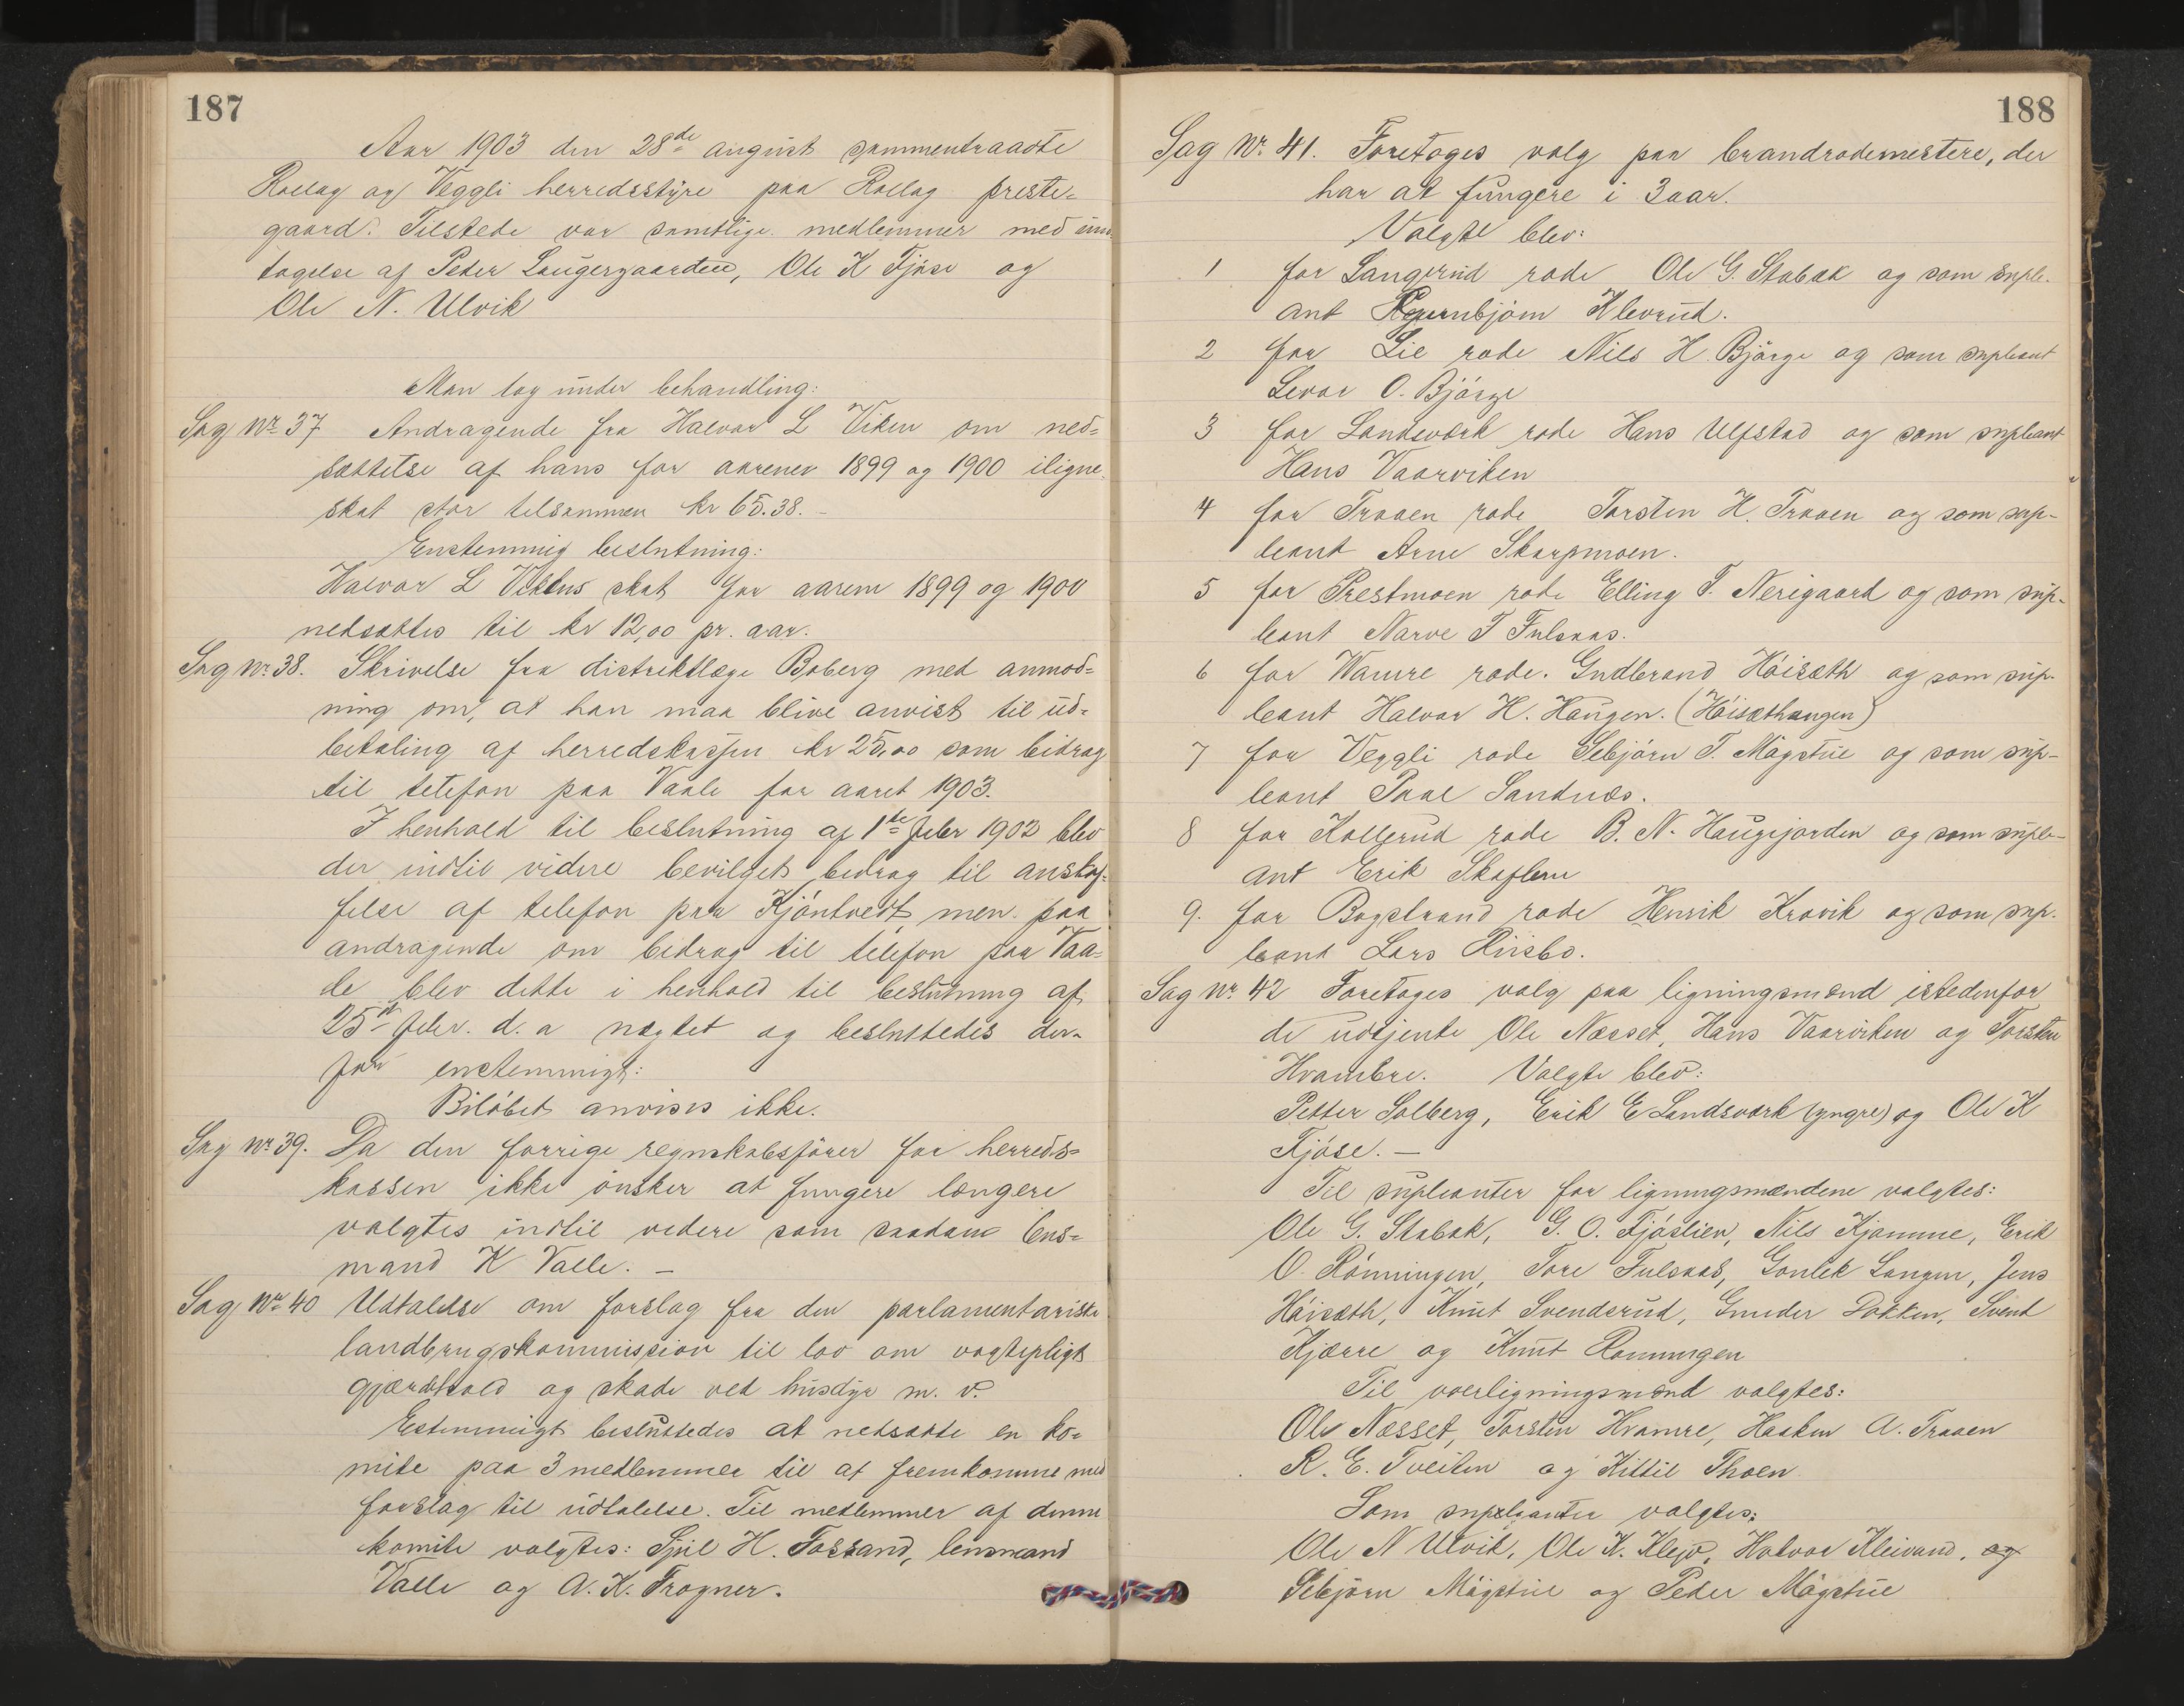 187
Aar 1903 den 28de august sammentraadte
Rollag og Veggli herredsstyre paa Rollag preste-
gaard. Tilstede var samtlige medlemmer med und
tagelse af Peder Laugergaarden, Ole K Fjøse og
Ole N. Ulvik
Man tog under behandling:
Sag Nr 37 Andragende fra Halvor L Viken om ned-
sættelse af hans for aarene 1899 og 1900 iligne
skat stor tilsammen kr 65.38.-
Enstemmig beslutning:
Halvor L Vikens skat for aarene 1899 og 1900
nedsættes til kr 12,00 pr. aar.
Sag Nr 38. Skrivelse fra distriktlæge Boberg med anmod-
ning om, at han maa blive anvist til ud-
betaling af herredskassen kr 25,00 som bidrag
til telefon paa Vaale for aaret 1903.
I henhold til beslutning af 1ste febr 1902 blev
der indtil videre bevilget bidrag til anskaf-
felse af telefon paa Kjøntvedt, men paa
andragende om bidrag til telefon paa Vaa-
le blev dette i henhold til beslutning af
25de febr. d. a nægtet og besluttedes der-
for enstemmigt:
Beløbet anvises ikke.
Sag Nr 39. Da den forrige regnskabsfører for herreds-
kassen ikke ønsker at fungere længere
valgtes indtil videre som saadan lens-
mand K Valle. -
Sag Nr 40 Udtalelse om forslag fra den parlamentariske
landbrugskommission til lov om vogtepligt
gjærdehold og skade ved husdyr m. v.
Enstemmigt besluttedes at nedsætte en ko-
mite paa 3 medlemmer til at fremkomme med
forslag til udtalelse. Til medlemmer af denne
komite valgtes: H. Fossand, lensmand
Valle og A. K. Frogner.
188
Sag Nr 41. Foretoges valg paa brandrodemestere, der
har at fungere i 3 aar.
Valgte blev:
1 for Langerud rode Ole G. Stabæk og som suple-
ant Gunbjørn Klevrud.
2 for Lie rode Nils H. Bjørge og som supleant
Levor O. Bjørge
3 for Landsværk rode Hans Ulfstad og som supleant
Hans Vaarviken
4 for Traaen rode Torsten H. Traaen og som sup-
leant Arne Skarpmoen.
5 for Prestmoen rode Elling T. Nerigaard og som sup-
leant Narve T Fulsaas.
6 for Wamre rode. Gudbrand Høisæth og som sup-
leant Halvor H. Haugen. (Høisæthaugen)
7 for Veggli rode Sebjørn T. Mågstue og som sup-
leant Paal Sandnæs.
8 for Kollerud rode B. N. Haugejorden og som suple-
ant Erik Skaflem
9. for Bogstrand rode Henrik Kravik og som sup-
leant Lars Riisbo.
Sag Nr 42 Foretoges valg paa ligningsmænd istedenfor
de udtjente Ole Næsset, Hans Vaarviken og Torsten
Hvambre. Valgte blev:
Petter Solberg, Erik E Landsværk (yngre) og Ole K
Fjøse. -
Til supleanter for ligningsmændene valgtes:
Ole G. Stabæk, G. O. Fjøslien, Nils Kjomme, Erik
O. Rønningen, Tore Fulsaas, Gonlek Langen, Jens
Høisæth, Knut Svendsrud, Gunder Dokken, Svend
Kjærre og Knut Rønningen
Til overligningsmænd valgtes:
Ole Næsset, Torsten Hvamre, Haaken A. Traaen
R. E. Tveiten og Kittil Thoen
Som supleanter valgtes:
Ole N Ulvik, Ole K. Klev, Halvor Kleivand, og
Sebjørn Mågstue og Peder Mågstue